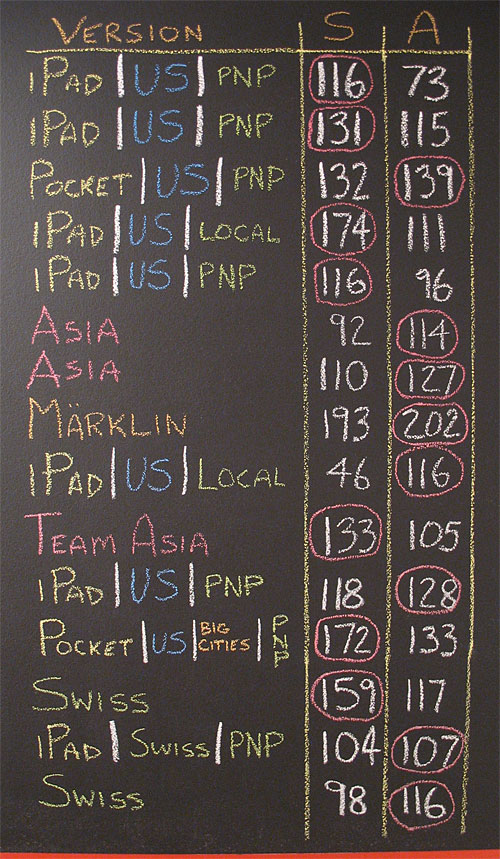 VERSION S A
iPAD | US | PNP 116 73
iPAD | US | PNP 131 115
POCKET | US | PNP 132 139
iPAD | US | LOCAL 174 111
iPAD | US | PNP 116 96
ASIA 92 114
ASIA 110 127
MÄRKLIN 193 202
iPAD | US | LOCAL 46 116
TEAM ASIA 133 105
iPAD | US | PNP 118 128
POCKET | US | BIG CITIES | PNP 172 133
SWISS 159 117
iPAD | SWISS | PNP 104 107
SWISS 98 116